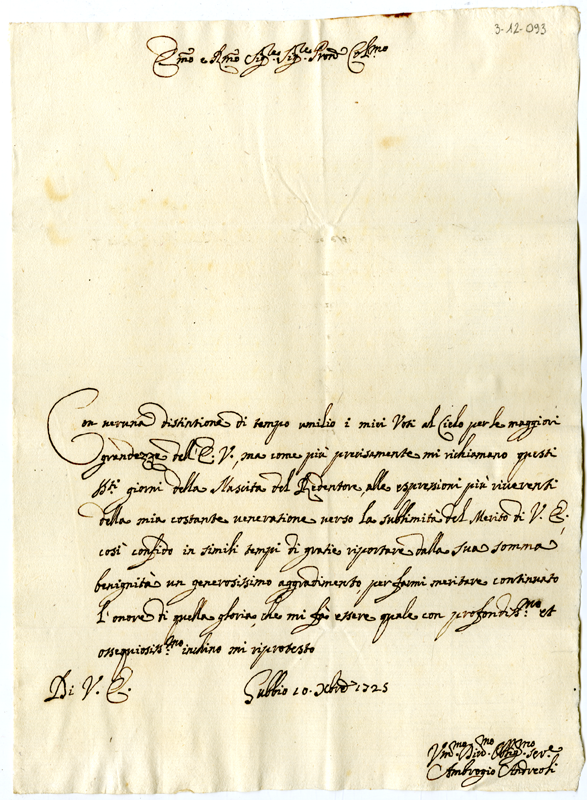 3-12-093
Em̃o e Rm̃o Sig.re Sig.re Pron̄ Col.mo
Con veruna distintione di tempo umilio i miei Voti al Cielo per le maggiori
grandezze dell'E. V., ma come più precisamente mi richiamano questi
SSti giorni della Nascita del Redentore, alle espressioni più riverenti
della mia costante veneratione verso la sublimità del Merito di V. E.,
così confido in simili tempi di gratie riportare dalla sua somma
benignità un generosissimo aggradimento, per farmi meritare continuato
l'onore di quella gloria, che mi fà essere quale con profondiss.mo et
ossequiosiss.mo inchino mi riprotesto
Di V. E.
Gubbio 10. Xbre 1725
Um.mo Div.mo Obblig.mo Ser.e
Ambrogio Andreoli